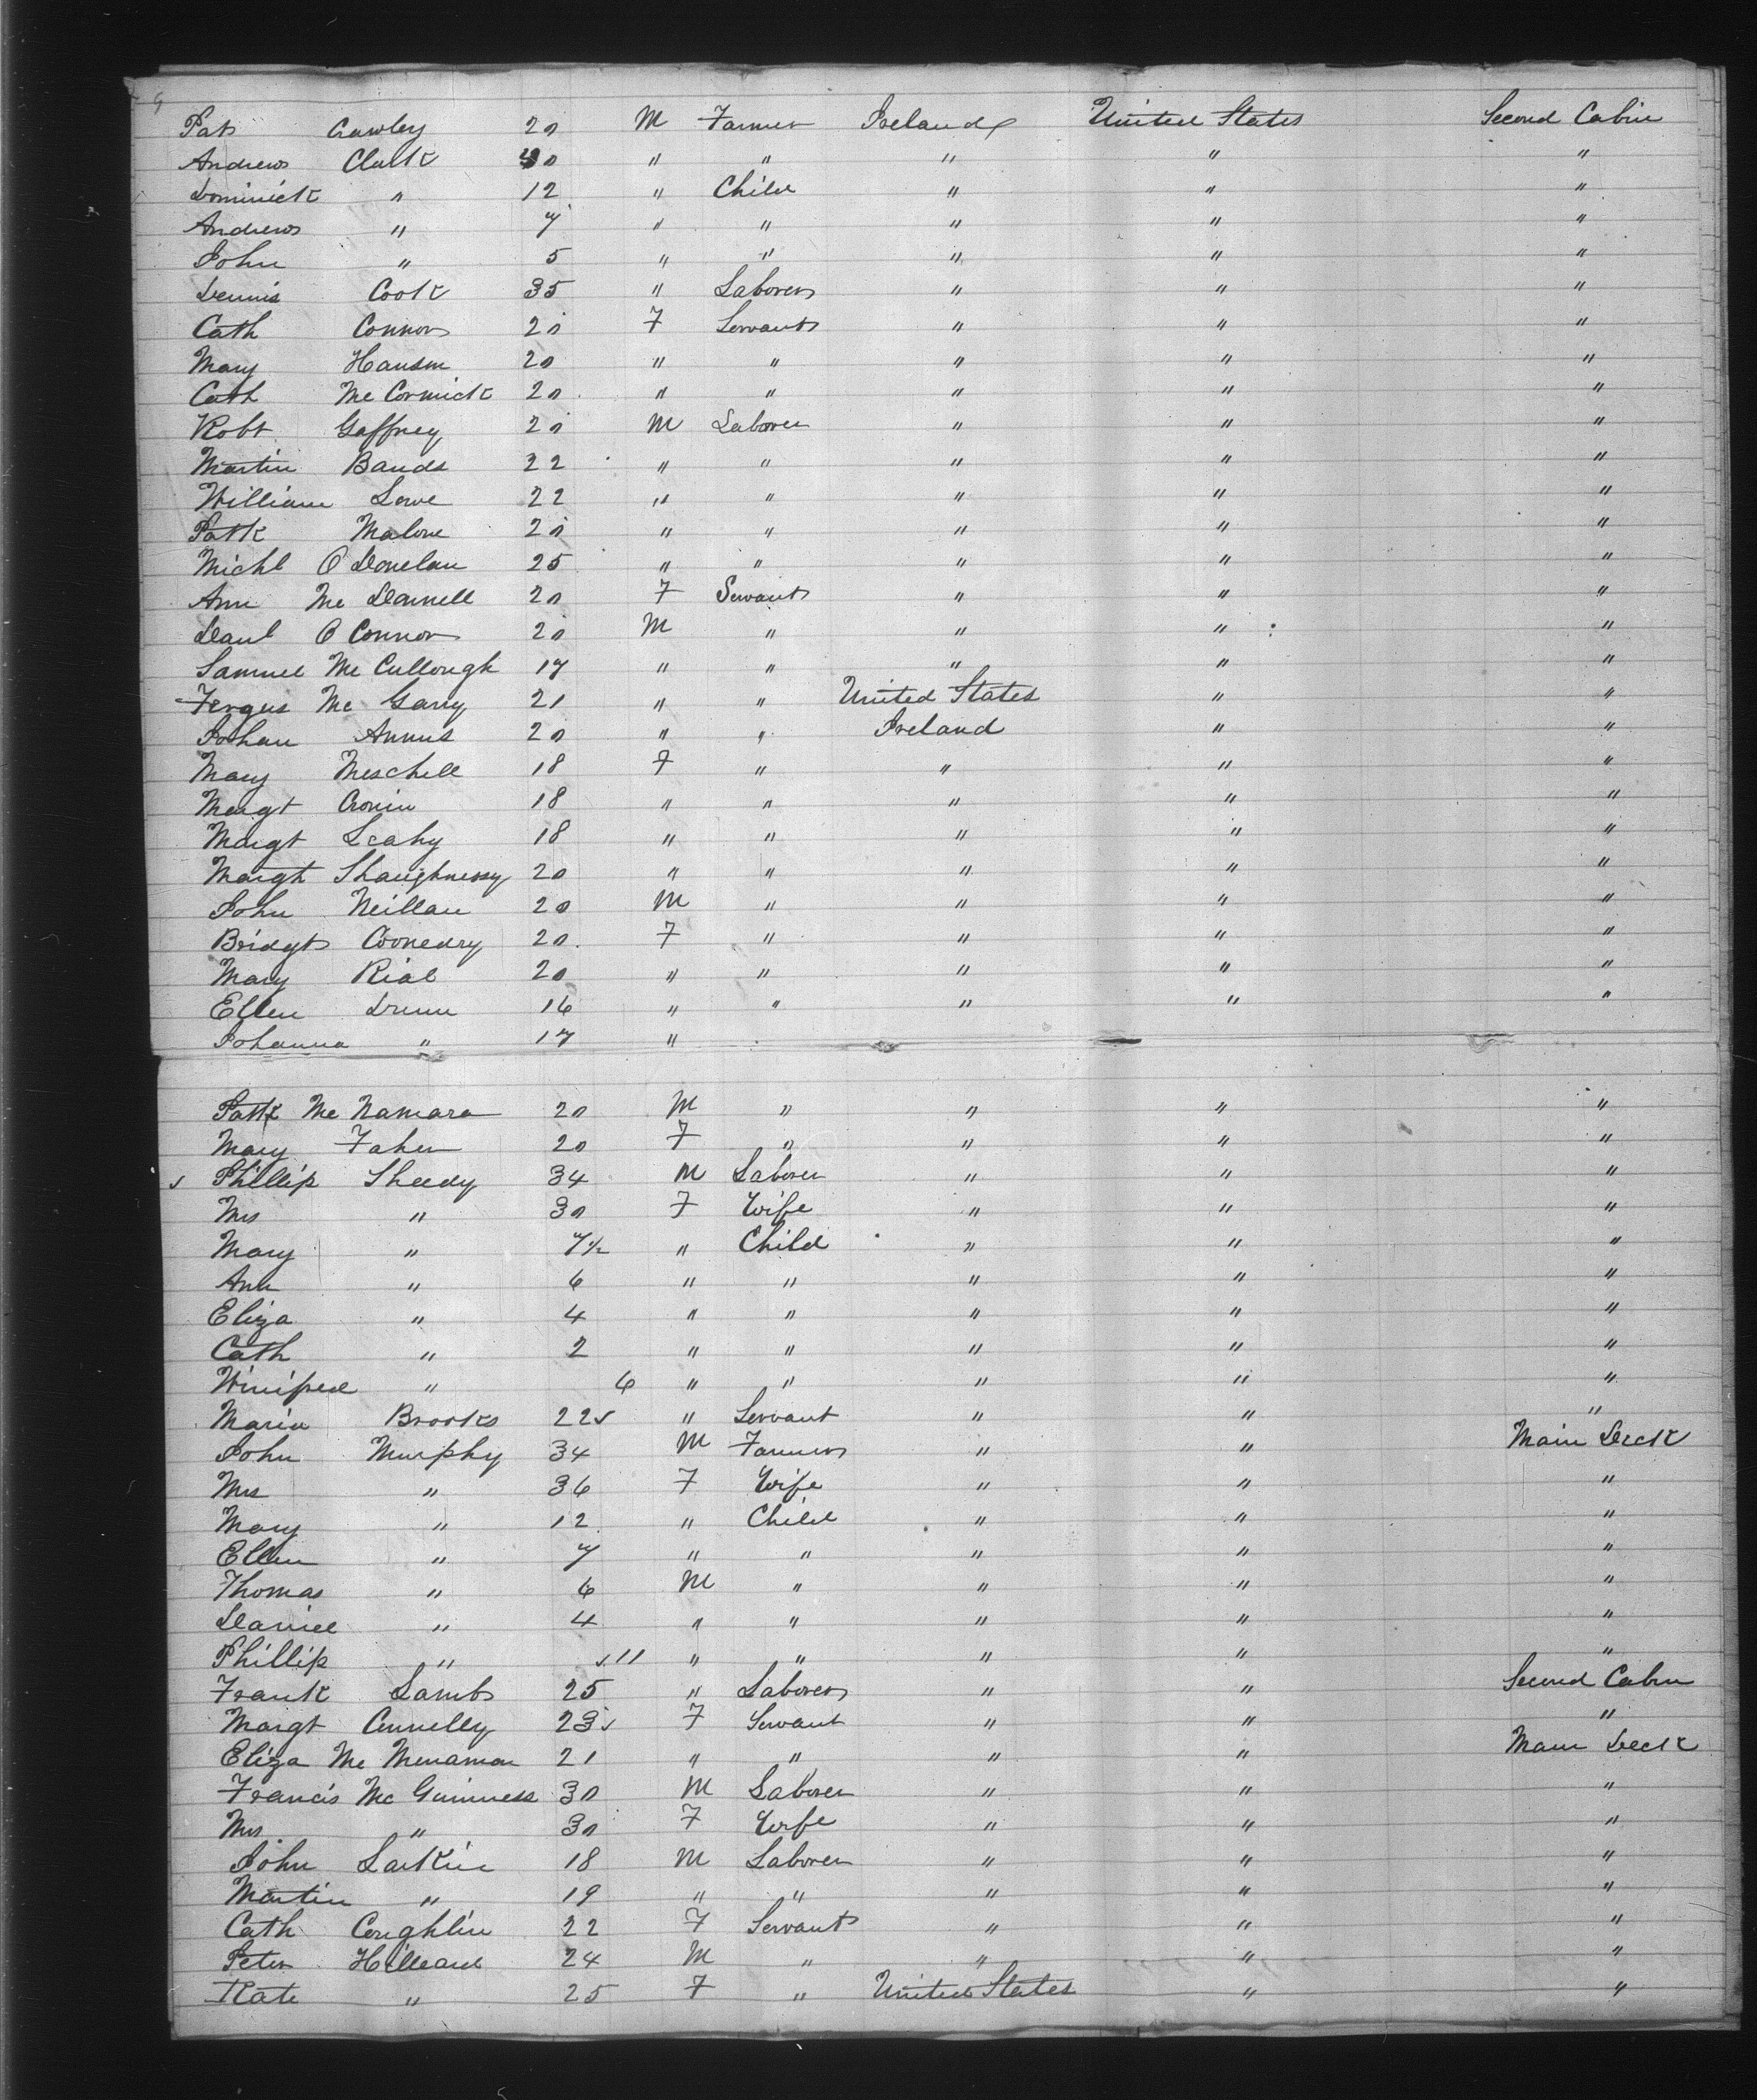 Pat Crawley 20 M Farmer Ireland United States Second Cabin
Andrew Clark 40 " " " " "
Dominick " 12 " Child " " "
Andrew " 7 " " " " "
John " 5 " " " " "
Dennis Cook 35 " Laborer " " "
Cath Connor 20 F Servant " " "
Mary Hanson 20 " " " " "
Cath McCormick 20 " " " " "
Robt Gaffney 20 M Laborer " " "
Martin Bands 22 " " " " "
William Lowe 22 " " " " "
Patk Malone 20 " " " " "
Michl O Donelan 25 " " " " "
Ann Mc Dannell 20 F Servant " " "
Danl O Connor 20 M " " " "
Samuel McCullough 17 " " " " "
Fergus Mc Garry 21 " " United States " "
Johan Annus 20 " " Ireland " "
Mary Meschell 18 F " " " "
Margt Cronin 18 " " " " "
Margt Leahy 18 " " " " "
Margt Shaughnessy 20 " " " " "
John Neillan 20 M " " " "
Bridgt 20 F " " " "
Mary Rial 20 " " " " "
Ellen Drum 16 " " " " "
Johanna " 17 "
Patk McNamara 20 M " " " "
Mary Faher 20 F " " " "
Phillip Sheedy 34 M Laborer " " "
Mrs " 30 F Wife " " "
Mary " 7½ " Child " " "
Ann " 6 " " " " "
Eliza " 4 " " " " "
Cath " 2 " " " " "
Winifred " 6 " " " " "
Maria Brooks 22 " Servant " " "
John Murphy 34 M Farmer " " Main Deck
Mrs " 36 F Wife " " "
Mary " 12 " Child " " "
Ellen " 7 " " " " "
Thomas " 6 M " " " "
Daniel " 4 " " " " "
Phillip " 11 " " " " "
Frank Lamb 25 " Laborer " " Second Cabin
Margt Connelly 23 F Servant " " "
Eliza McMenamon 21 " " " " Main Deck
Francis McGuinness 30 M Laborer " " "
Mrs " 30 F Wife " " "
John Larkin 18 M Laborer " " "
Martin " 19 " " " " "
Cath Coughlin 22 F Servant " " "
Peter Hilleard 24 M " " " "
Kate " 25 F " United States " "